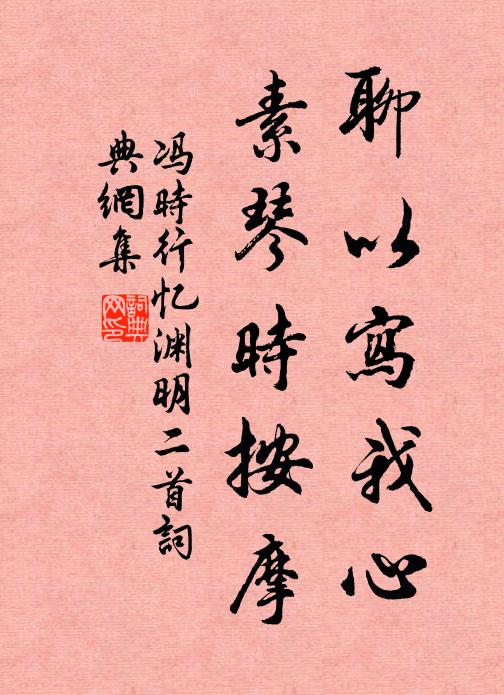 聊以寫我心
素琴時按摩
冯時行忆渊明二首詞
典網集
詞典網印